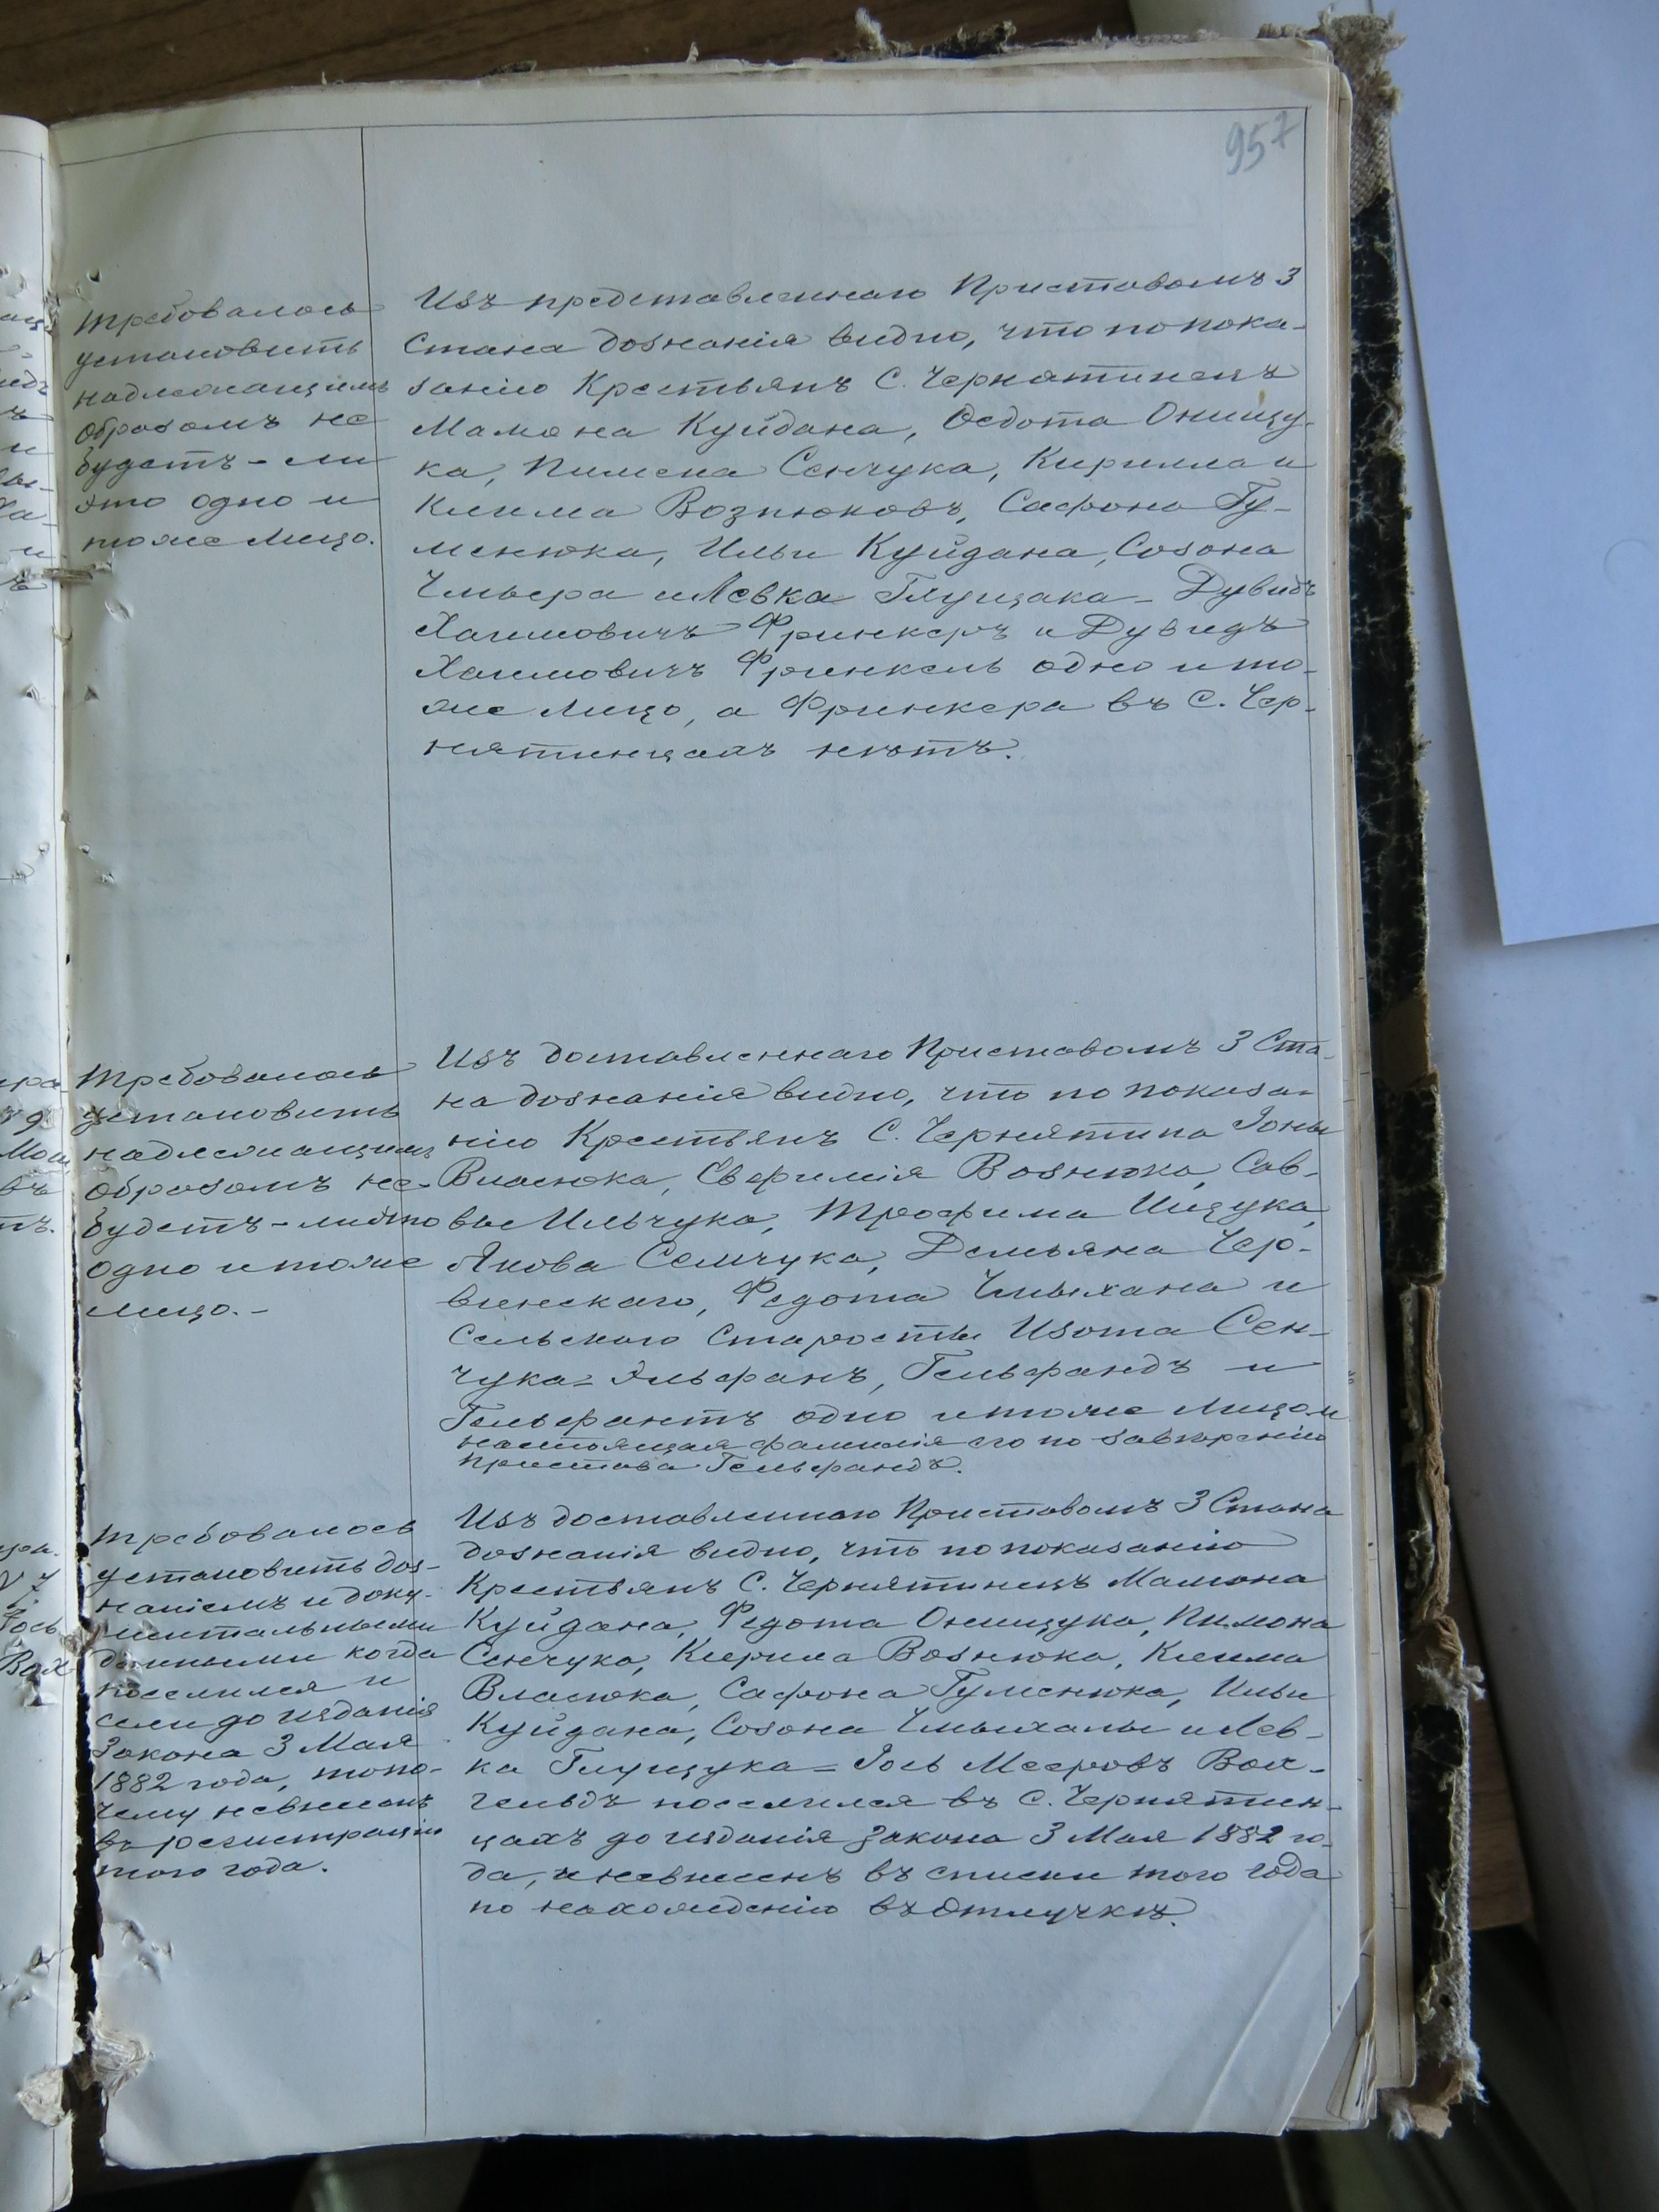 957
Требовалось
установить
надлежащимъ
образомъ не
будетъ-ли
это одно и
тоже лицо.
Изъ представленнаго Приставомъ 3
Стана дознанія видно, что по пока-
занію Крестьянъ С. Чернятинецъ
Мамона Куйдана, Федота Онищу-
ка, Пимена Сенчука, Кирилла и
Клима Вознюковъ, Сафона Гу-
менюка, Ильи Куйдана, Созона
и Левка Глущака - Дувидъ
Хаимовичъ Фринкеръ и Дувидъ
Хаимовичъ Фринкель одно и то-
же лицо, а Фринкера въ С. Чер-
нятинцахъ нѣтъ.
Требовалось
установить
надлежащимъ
образомъ не-
будетъ-ли это
одно и тоже
лицо.-
Изъ доставленнаго Приставомъ 3 Ста-
на дознанія видно, что по показа-
нію Крестьянъ С. Чернятина Іоны
Власюка, Евфимія Вознюка, Сав-
вы Ильчука, Трофима Ищука,
Якова Семчука, Демьяна Чер-
винскаго, Федота Чмыхана и
Сельскаго Старосты Изота Сен-
чука = Эльфанъ, Гельфандъ и
Гельфантъ одно и тоже лицо и
настоящая фамилія его по завѣренію
Пристава Гельфандъ.
Требовалось
установить доз-
наніемъ и доку-
ментальными
данными когда
поселился и
если до изданія
Закона 3 Мая
1882 года, то по-
чему невнесенъ
въ регистрацію
того года.
Изъ доставленнаго Приставомъ 3 Стана
дознанія видно, что по показанію
Крестьянъ С. Чернятинецъ Мамона
Куйдана, Федота Онищука, Пимона
Сенчука, Кирила Вознюка, Клима
Власюка, Сафона Гуменюка, Ильи
Куйдана, Созона Чмыхалы и Лев-
ка Глущука = Іось Мееровъ Вай-
гельдъ поселился въ С. Чернятин-
цахъ до изданія Закона 3 Мая 1882 го-
да, и невнесенъ въ списки того года
по нахожденію въ отлучкѣ.